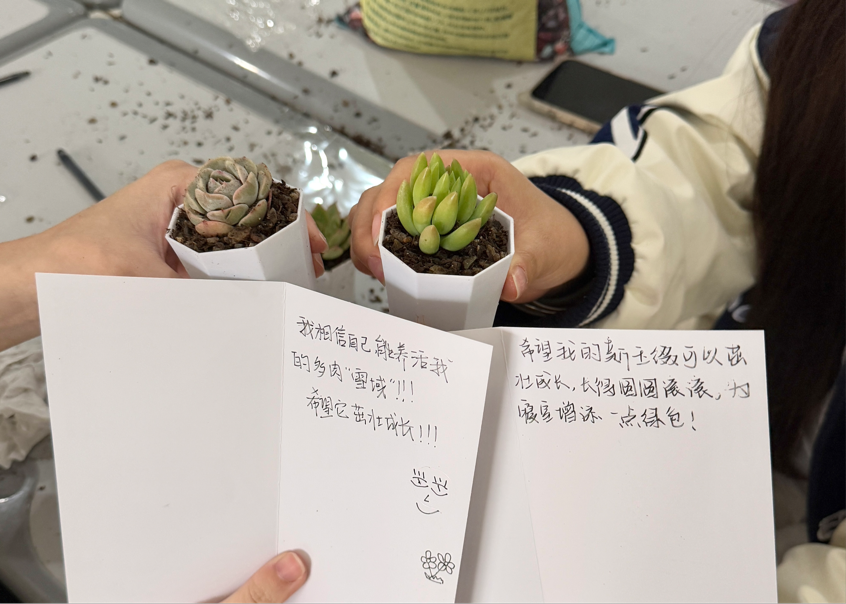 我相信自己能养活我
的多肉“雪域”!!!
希望它茁壮成长!!!
希望我的新玉缀可以茁
壮成长，长得圆圆滚滚，为
寝室增添一点绿色！